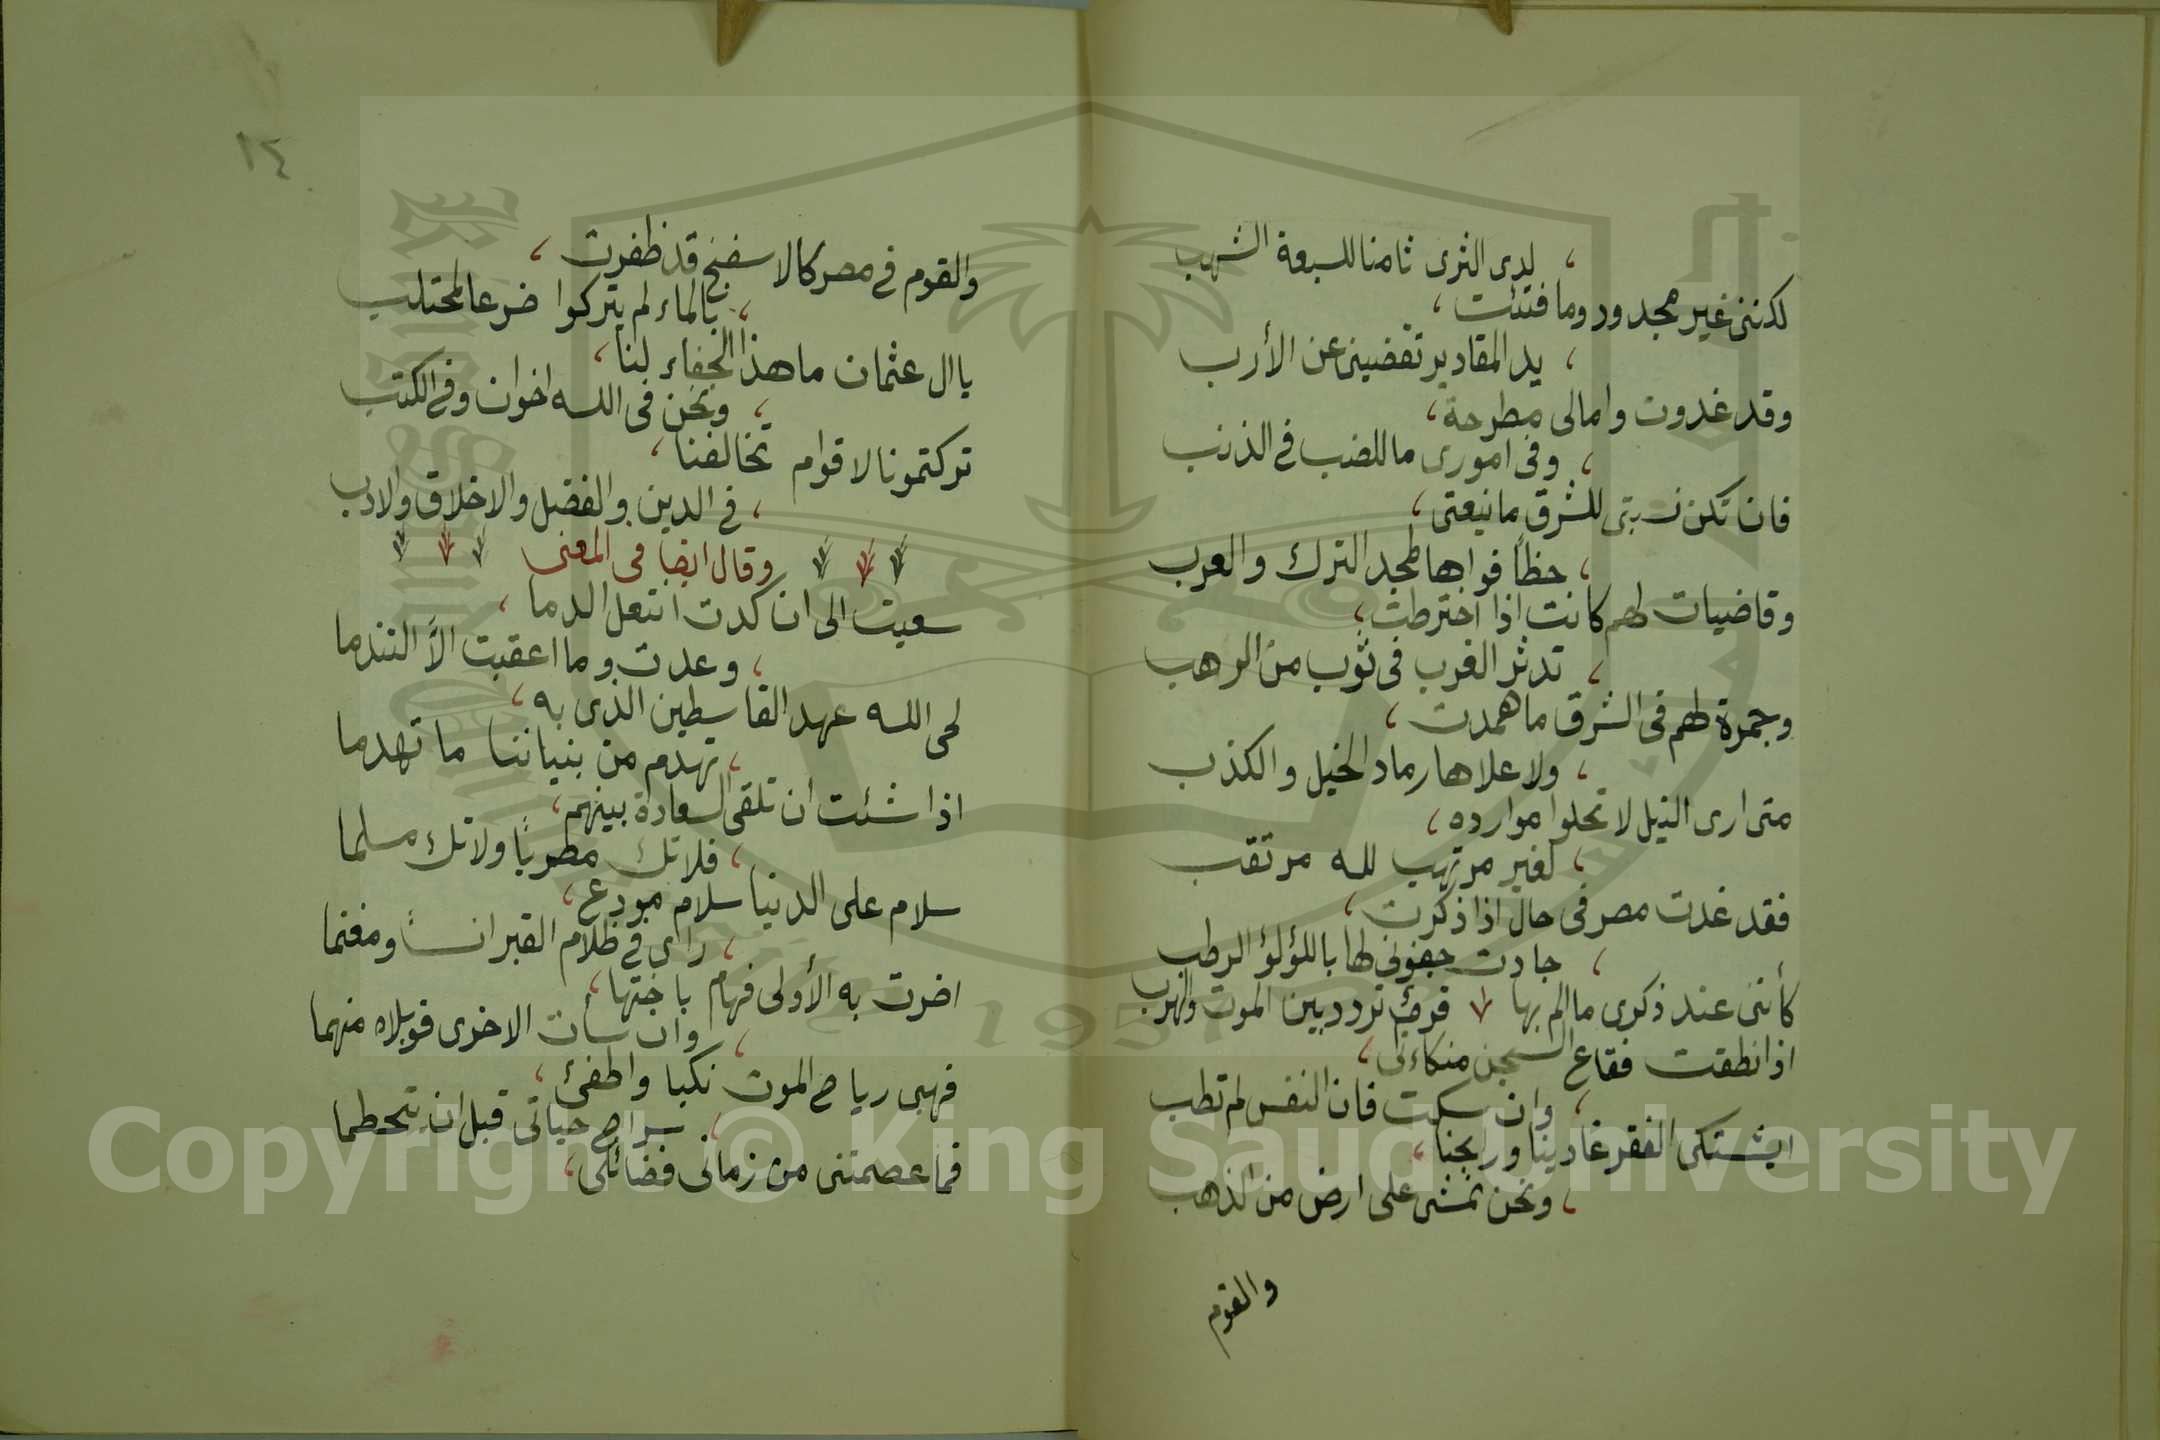 لدى الثرى ثامنا للسبعة الشهب
لكننى غير مجدود وما فتئت
يد المقادير تقضينى عن الأرب
وقد غدوت وامالى مطرحة
وفى امورى ما للضب فى الذنب
فان تكن نسبتى للشرق مانيعتى
حظاً فواها لمجد الترك والعرب
وقاضيات لهم كانت اذا اخترطت
تدثر الغرب فى ثوب من الرهب
وجمرة لهم فى الشرق ما همدت
ولا علاها رماد الخيل والكذب
متى ارى النيل لا تحلوا موارده
لغير مرتهب لله مرتقب
فقد غدت مصر فى حال اذا ذكرت
جادت جفونى لها باللؤلؤ الرطب
كأننى عند ذكرى ما الم بها قرم تردد بين الموت والهرب
اذا نطقت فقاع السجن متكاءتى
وان سكت فان النفس لم تطب
ايشتكى الفقر غادينا ورايحنا
ونحن نمشى على ارض من الذهب
والقوم
١٤
والقوم فى مصر كالاسفنج قد ظفرت
بالماء لم يتركوا ضرعا لمحتلب
يا ال عثمان ما هذا الجفاء لنا
ونحن فى الله اخوان وفى الكتب
تركتمونا لاقوام تخالفنا
فى الدين والفضل والاخلاق والادب
وقال ايضا فى المعنى
سعيت الى ان كدت انتعل الدما
وعدت وما اعقبت الاّ التندما
لحى الله عهد القاسطين الذى به
تهدم من بنياننا ما تهدما
اذا شئت ان تلقى السعادة بينهم
فلا تك مصريًا ولا تك مسلما
سلام على الدنيا سلام مودع
راى فى ظلام القبر انسا ومغنما
اضرت به الأولى فهام باختها
وان سات الاخرى فويلاه منهما
فهبى رياح الموت نكبا واطفئ
سراج حياتى قبل ان يتحطما
فما عصمتنى من زمانى فضائلى
Copyright © King Saud University
1957